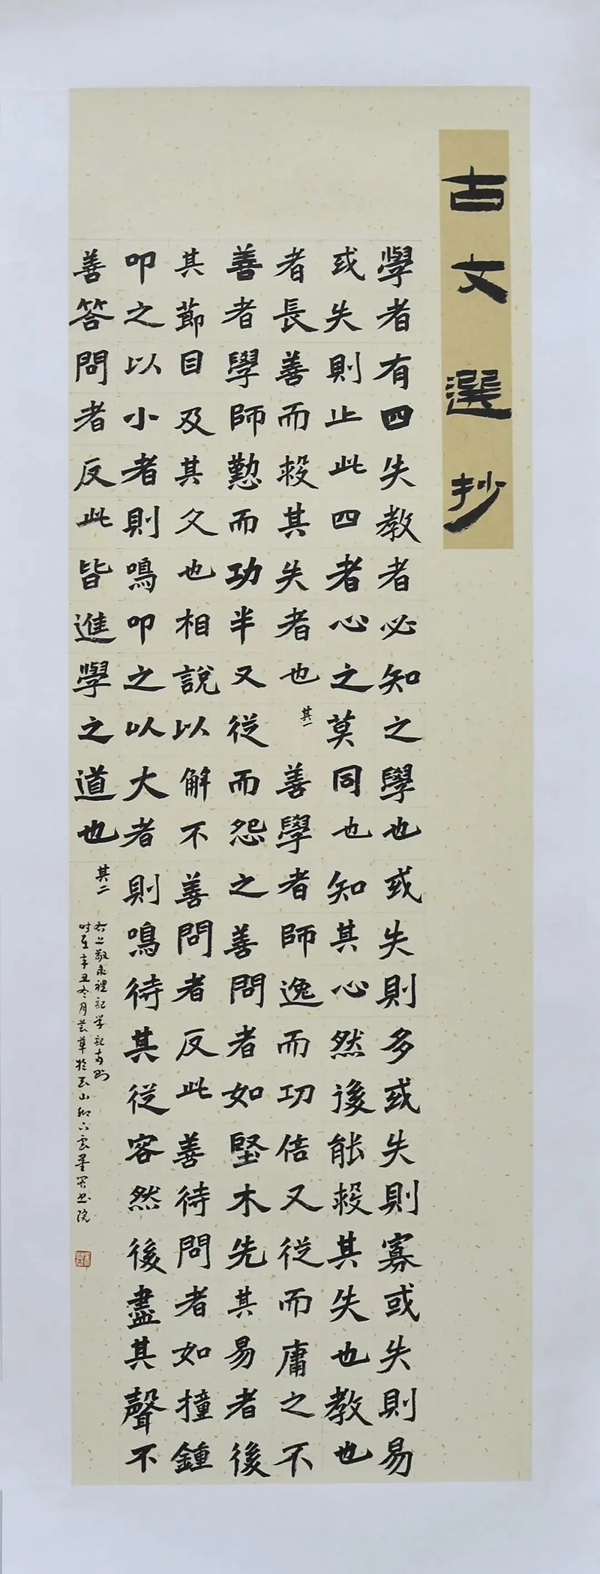 古文選抄
學者有四失教者必知之學也或失則多或失則寡或失則易
或失則止此四者心之莫同也知其心然後能救其失也教也
者長善而救其失者也 其一 善學者師逸而功倍又從而庸之不
善者學師勤而功半又從而怨之善問者如堅木先其易者後
其節目及其久也相說以解不善問者反此善待問者如撞鍾
叩之以小者則鳴叩之以大者則鳴待其從容然後盡其聲不
善答問者反此皆進學之道也 其二
右上敬录禮記学記両則
時在辛丑冬月